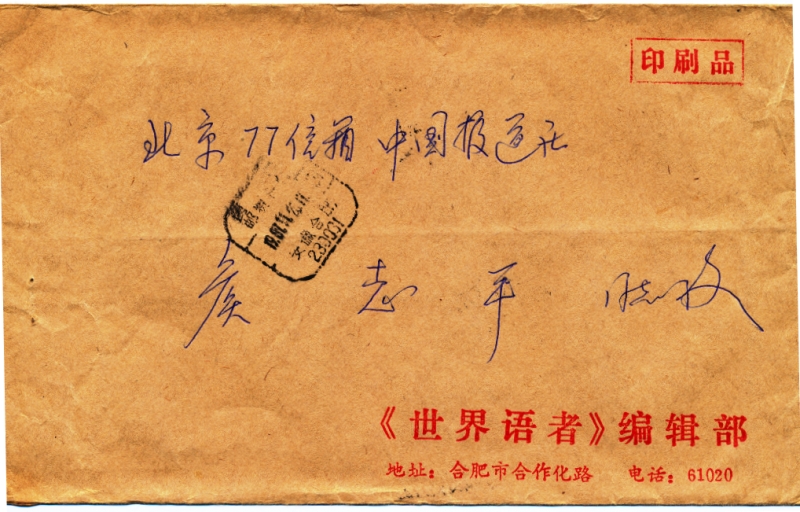 印刷品
北京77信箱 中国报道社
侯志平 同志收
安徽合肥
230001
《世界语者》编辑部
地址：合肥市合作化路 电话：61020